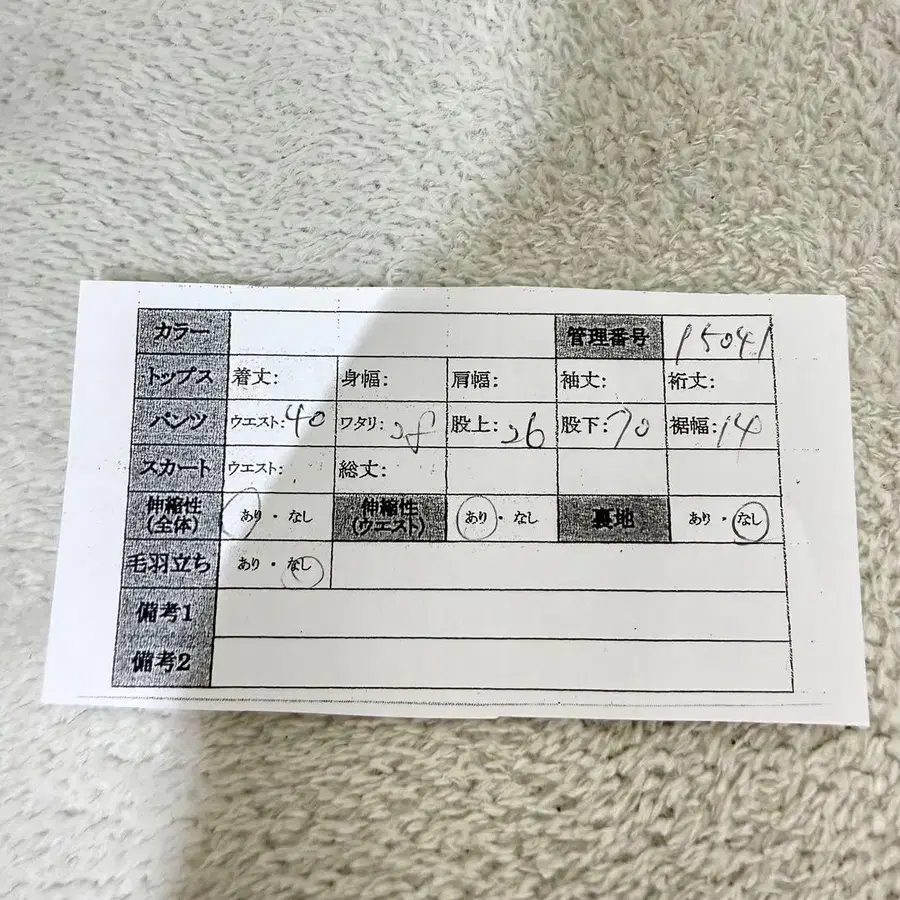 カラー 管理番号 15041
トップス 着丈: 身幅: 肩幅: 袖丈: 裄丈:
パンツ ウエスト:40 ワタリ:28 股上:26 股下:70 裾幅:14
スカート ウエスト: 総丈:
伸縮性(全体) あり・なし 伸縮性(ウエスト) あり・なし 裏地 あり・なし
毛羽立ち あり・なし
備考1
備考2